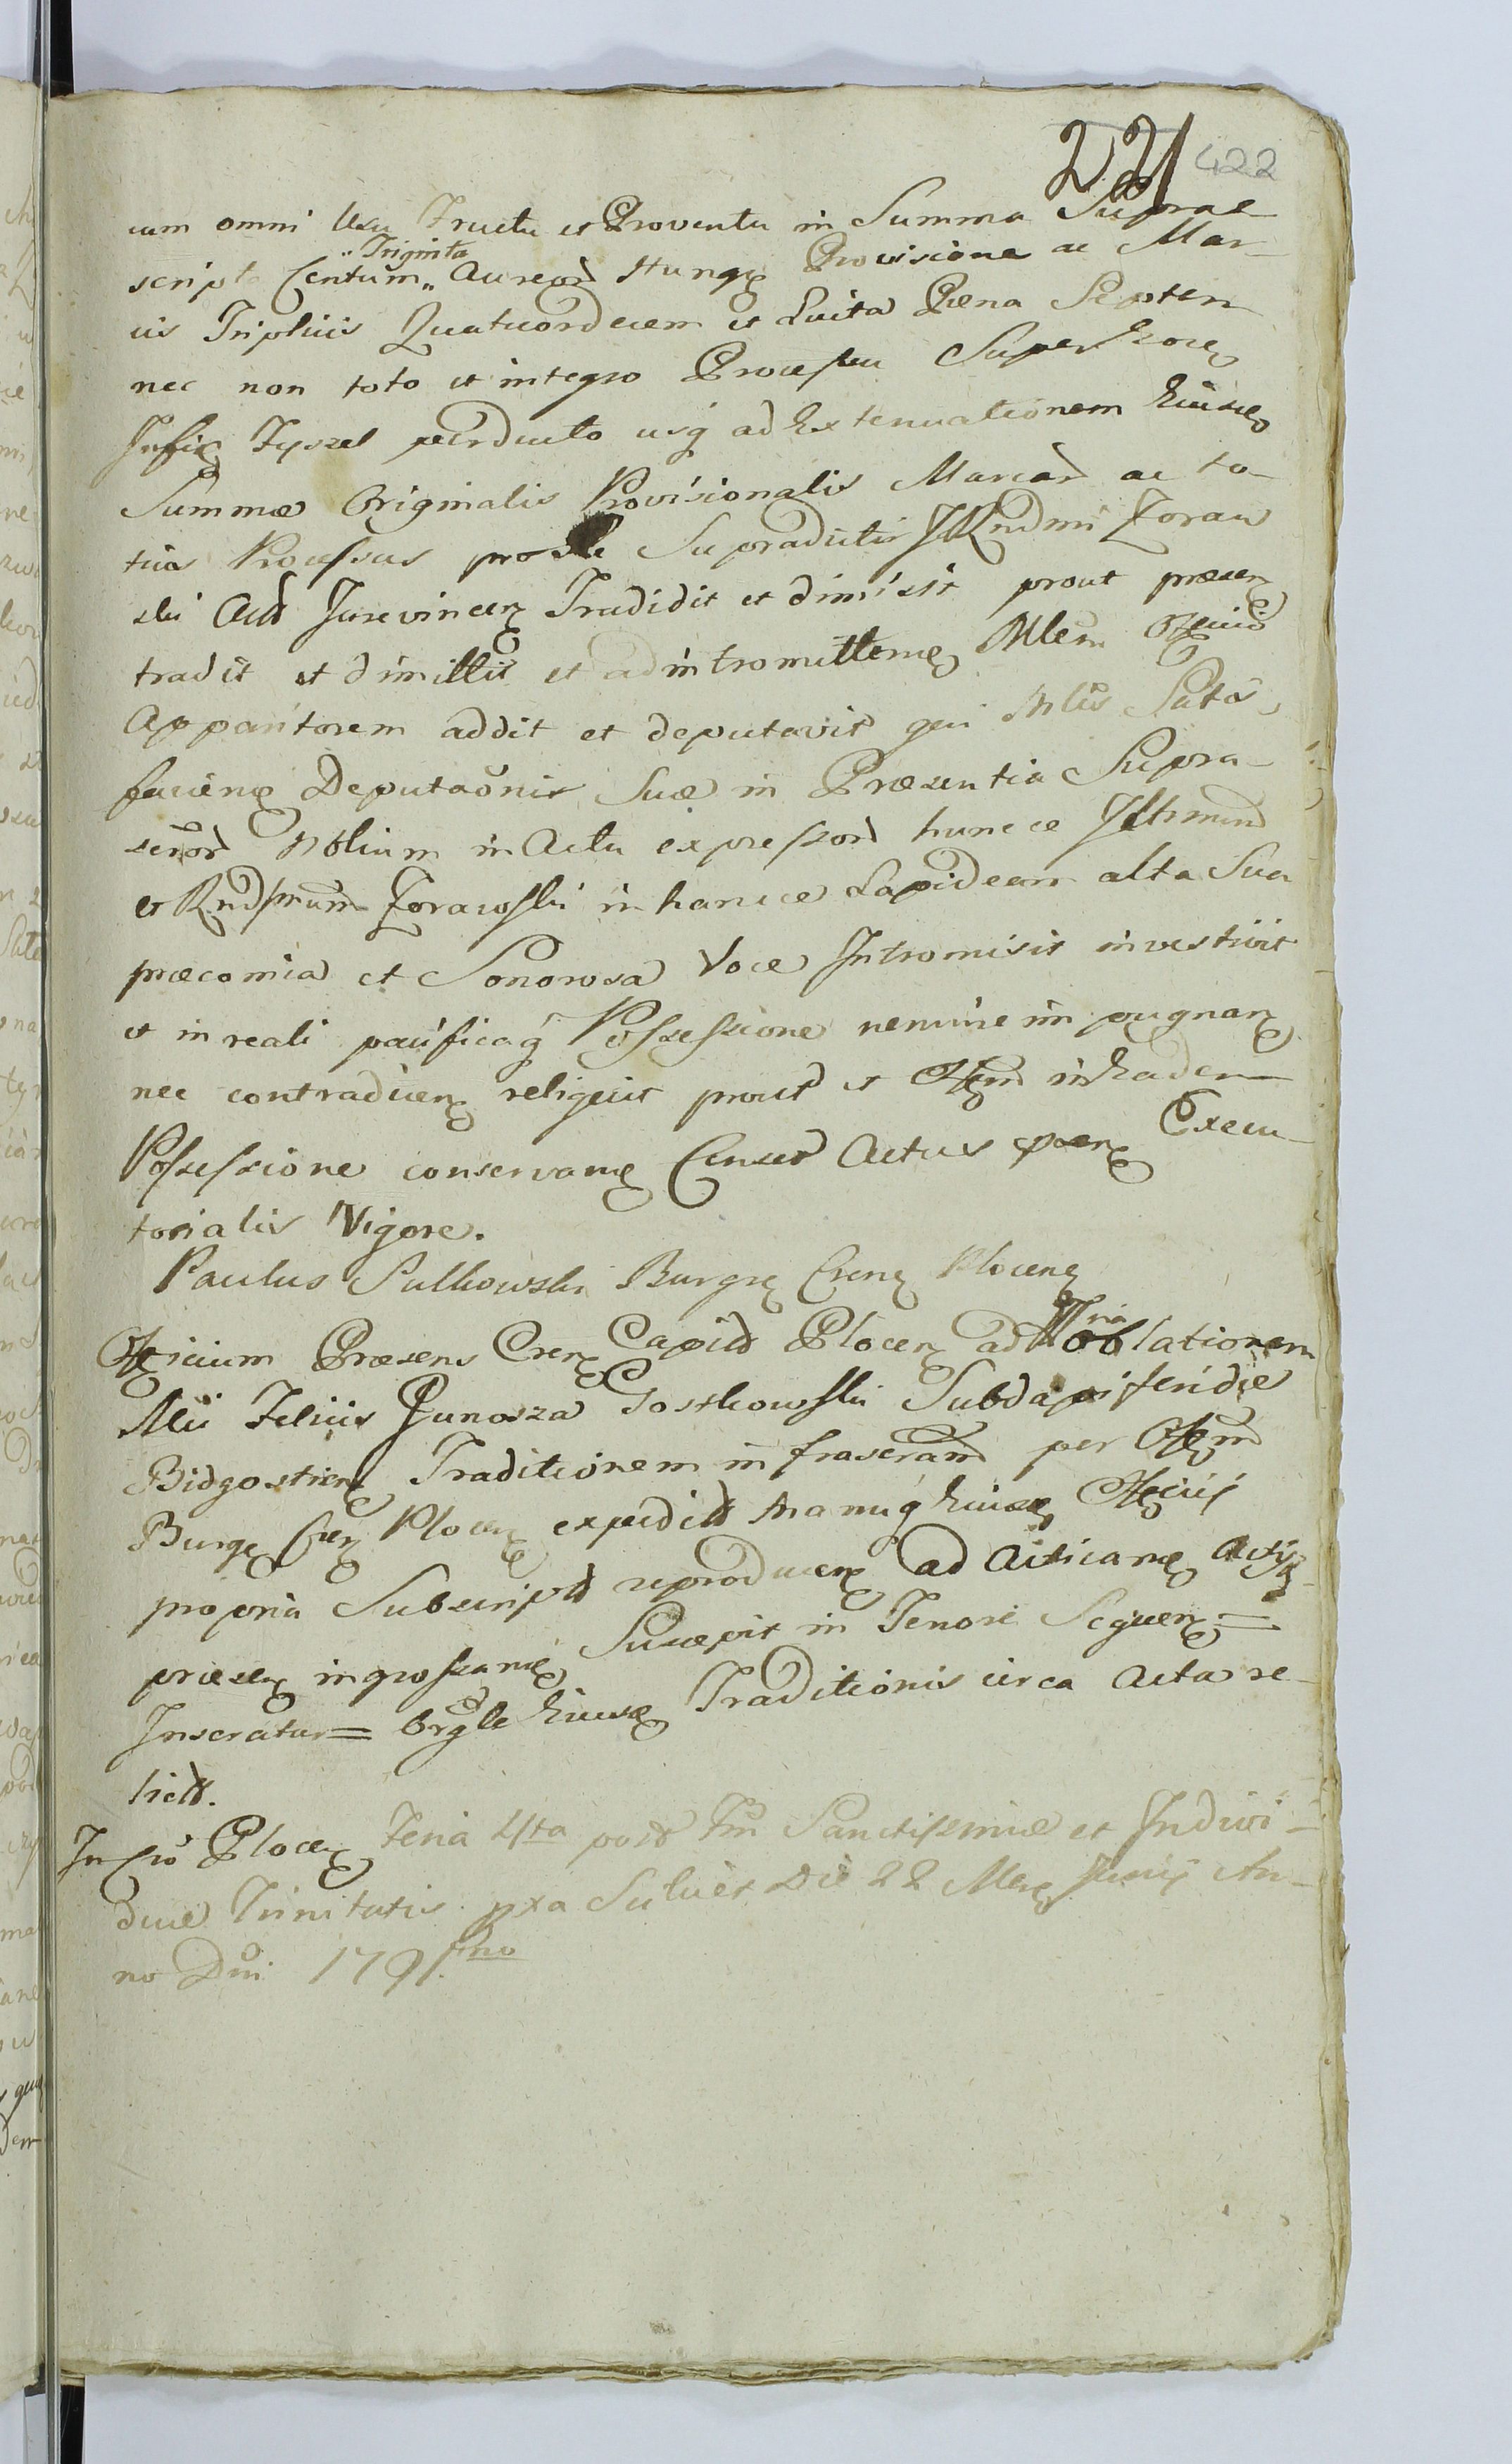 221 422
cum omni Usu Fructu et Proventu in Summa Suprae
script Centum „Triginta„ Aureor Hungę Provisione ac Mar-
cis Triplicis Quatuordecem et Luita Pæna Septen
nec non toto et integro Processu Super
Infię Tyszel perducto usq ad Extenuationem Eiusdę
Summæ Originalis Provisionalis Marcar ac to-
tius Processus pro Supradictis JRndmi Zoraw
ski Act Jurevincenę Tradidit et dimisit prout præsenę
tradit et dimittit et ad intromittenę Mlem Offcius
Apparitorem addit et deputavit qui Mlis Satis
facienę Deputaonis Suæ in Præsentia Supra-
scror Nobilium in Actu expressor hunc ce Illrmum
et Rndssmum Zorawski in hancce Lapideam alta Sua
præconia et Sonorosa Voce Intromisit investivit
et in reali pacificaq Possessione nemine im pugnanę
nec contradicenę reliquit prout et Offm in Eadem
Possessione conservanę Censet Actus præsenę Execu-
torialis Vigore.
Paulus Sulkowski Burgrę Crenę Plocenę
Officium Præsens Crenę Capit Plocenę ad oblationem
Mci Felicis Junosza Gostkowski Subdapiferidæ
Bidgostienę Traditionem infrascram per Offm
Burgę Crenę Plocenę expedit Manuq Eiusdę Officij
propria Subscript reproducenę ad Acticanę Actisq
præsenę ingrossanę Suscepit in Tenore Sequenę =
Inseratur = Orgle Eiusdę Traditionis circa Acta re-
lict.
In Cro Plocenę Feria 4ta post Fm Sanctissimæ et Indivi-
duæ Trinitatis pxa Scilicet Die 22 Menę Junij An-
no Dni 1791.mo